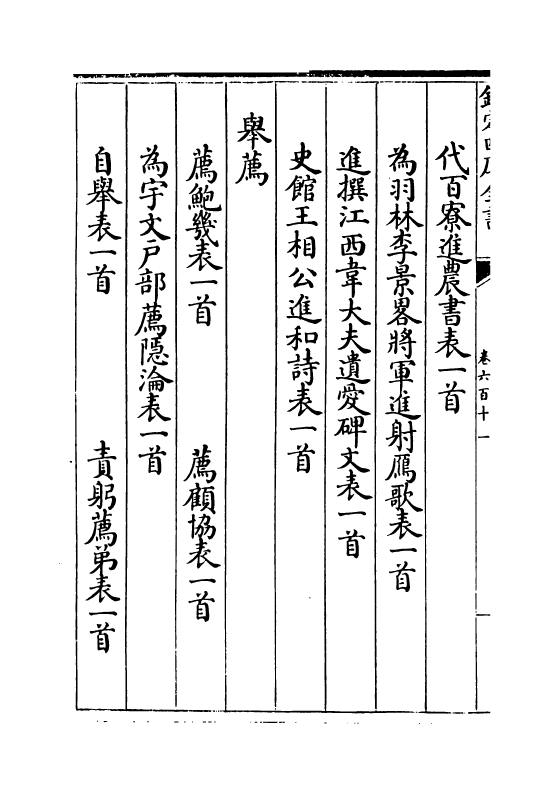 欽定四庫全書
卷六百十一
代百寮進農書表一首
為羽林李景畧將軍進射鴈歌表一首
進撰江西韋大夫遺愛碑文表一首
史館王相公進和詩表一首
舉薦
薦鮑幾表一首 薦顧協表一首
為宇文戶部薦隱淪表一首
自舉表一首 責躬薦弟表一首